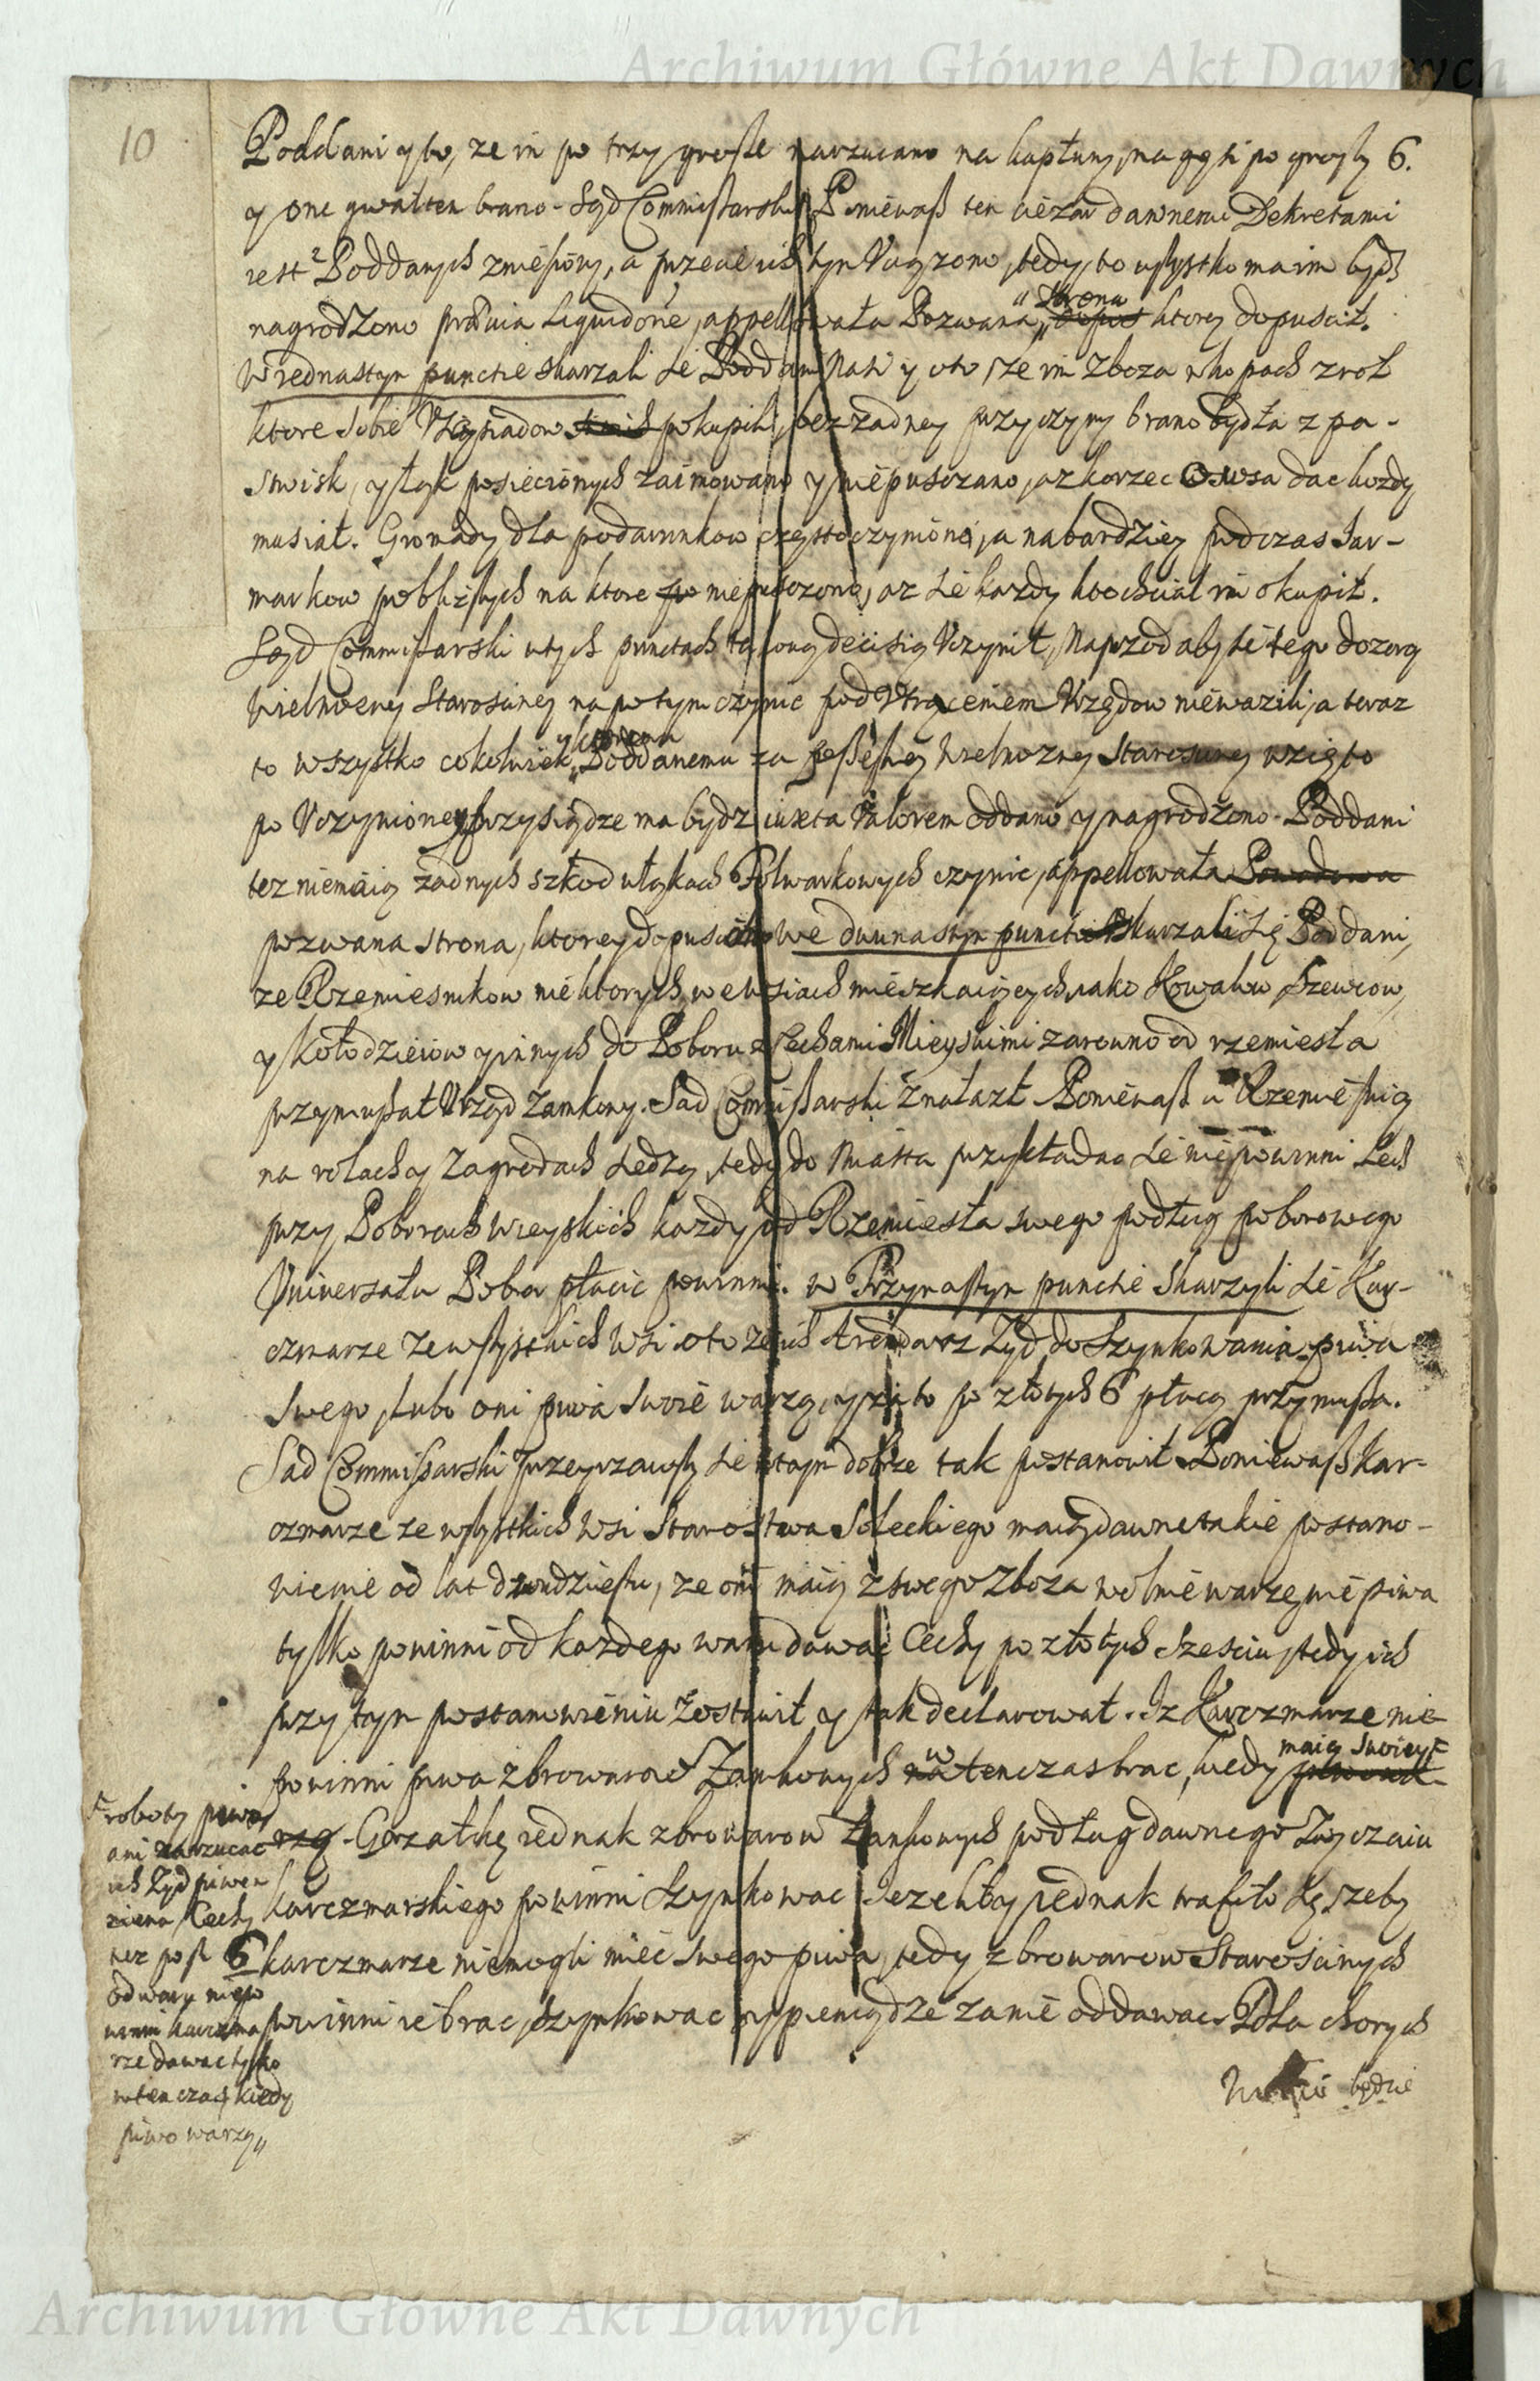 Archiwum Główne Akt Dawnych
10
Poddani y to, ze im po trzy grosze narzucano na kapłuny, na gęsi po groszy 6.
y one gwałtem brano. Sąd Commissarski Ponieważ ten ciężar dawnemi Dekretami
iest z Poddanych zniesiony, a przecie ich tym Uciążono, tedy to wszystko ma im bydź
nagrodzono liquidonie, appellowała Pozwana Strona ktorey dopuscił.
W iednastym punctie skarzali sie Poddani Nasi y oto, ze im Zboza w kopach z rol
ktore sobie Usąsiadow pokupili, bez zadney przyczyny brano bydła z pa-
stwisk, y łąk posieczonych zaimowano y niepuszczano, az korzec Owsa dac kozdy
musiał. Gromady dla podarunkow często czyniono, a nabardziey podczas Jar-
markow pobliszych na ktore niepuszczono, az sie kazdy kto chciał im okupił.
Sąd Commissarski w tych punctach taką decisią Uczynił, Naprzod aby sie tego dozorcy
Wielmozney Starosciney napotym czynic pod Utraceniem Urzędow niewazili, a teraz
to wszystko cokolwiek y ktoremu Poddanemu za possessiey Wielmozney Starosciney wzięto
po Uczynioney przysiądze ma bydz iuxta Valorem oddano y nagrodzono. Poddani
tez niemaią zadnych szkod w łąkach Folwarkowych czynic, appellowała Powodowa
pozwana strona, ktorey dopuscił. We dwunastym punctie skarzali się Poddani,
ze Rzemiesnikow niektorych we wsiach mieszkaiących, iako Kowalow Szewcow,
y Kołodzieiow y innych do Poboru z Cechami Mieyskimi zarowno od rzemiesła
przymuszał Urząd Zamkowy. Sad Commissarski Znalazł Poniewasz ci Rzemiesnicy
na rolach y Zagrodach siedzą, tedy do Miasta przykładac sie niepowinni Lecz
przy Poborach wieyskich kazdy od Rzemiesła swego podług poborowego
Universału Pobor płacic powinni. w Trzynastym punctie skarzyli sie Kar-
czmarze ze wszystkich Wsi oto ze ich Arendarz Zyd do Szynkowania piwa
swego, lubo oni piwa swoie warzą, y za to po złotych 6 płacą przymusza.
Sad Commissarski przeyrzawszy sie w tym dobrze tak postanowił Poniewasz kar-
czmarze ze wszystkich Wsi Starostwa Soleckiego maią dawne takie postano-
wienie od lat dwudziestu, ze oni maią z swego Zboza wolne warzenie piwa
tylko powinni od kazdego waru dawac Cechy po złotych szesciu, tedy ich
przy tym postanowieniu Zostawił y tak declarował. Iz Karczmarze nie
powinni piwa z browarow Zamkowych w tenczas brac, kiedy maią swoiey
rzą. Gorzałkę iednak z browarow Zamkowych podług dawnego Zwyczaiu
karczmarskiego powinni szynkowac. Iezeliby iednak trafiło się zeby
karczmarze niemogli miec swego piwa, tedy z browarow Staroscinych
powinni ie brac, szynkowac y pieniądze zanie oddawac. Dla chorych
będzie
roboty piwo,
ani narzucac
ich Zyd piwem
niema, Cechy
tez po fl 6
od waru niepo
winni karczma
rze dawac tylko
wtenczas kiedy
piwo warzą
Archiwum Główne Akt Dawnych